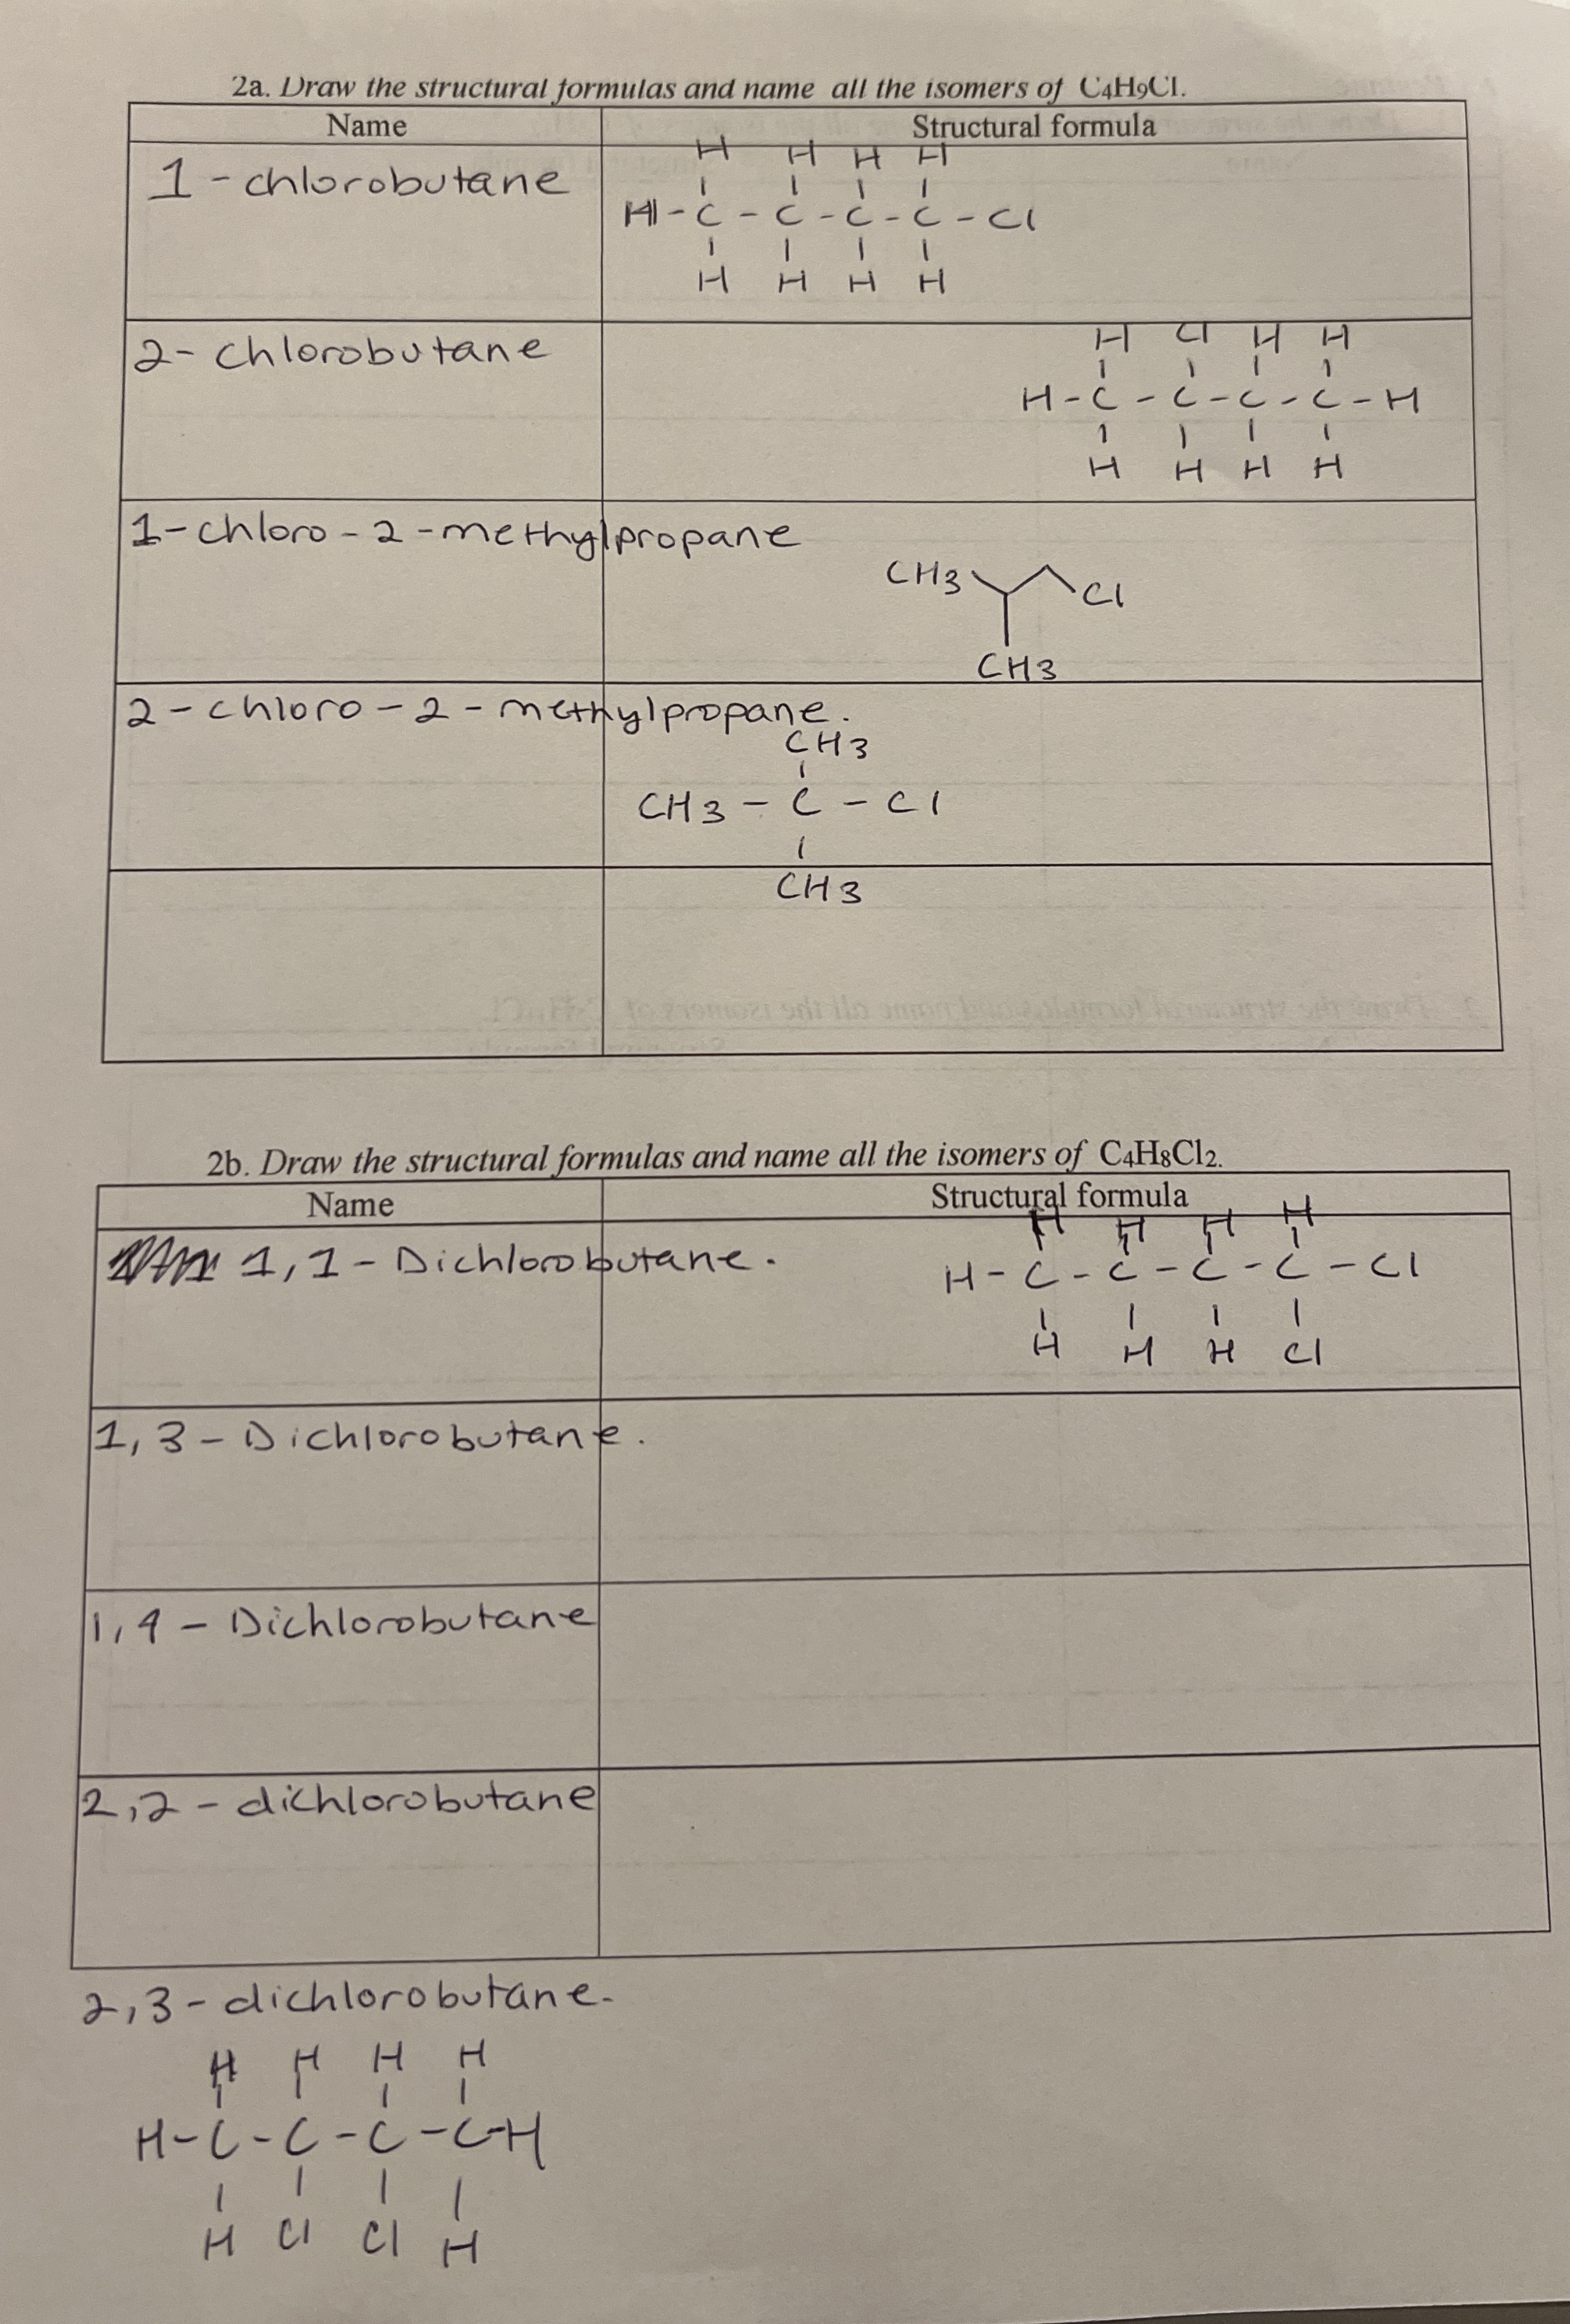 2a. Draw the structural formulas and name all the isomers of C4H9Cl.
Name Structural formula
1-chlorobutane
H H H H
H-C-C-C-C-Cl
H H H H
2-chlorobutane
H Cl H H
H-C-C-C-C-H
H H H H
1-chloro-2-methylpropane
CH3 Cl
CH3
2-chloro-2-methylpropane.
CH3
CH3-C-Cl
CH3
2b. Draw the structural formulas and name all the isomers of C4H8Cl2.
Name Structural formula
1,1-Dichlorobutane.
H H H H
H-C-C-C-C-Cl
H H H Cl
1,3-Dichlorobutane.
1,4-Dichlorobutane
2,2-dichlorobutane
2,3-dichlorobutane.
H H H H
H-C-C-C-C-H
H Cl Cl H